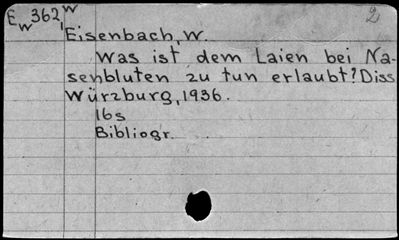 Ew362,w 2
Eisenbach, W.
Was ist dem Laien bei Na-
senbluten zu tun erlaubt? Diss
Würzburg, 1936.
16s
Bibliogr.